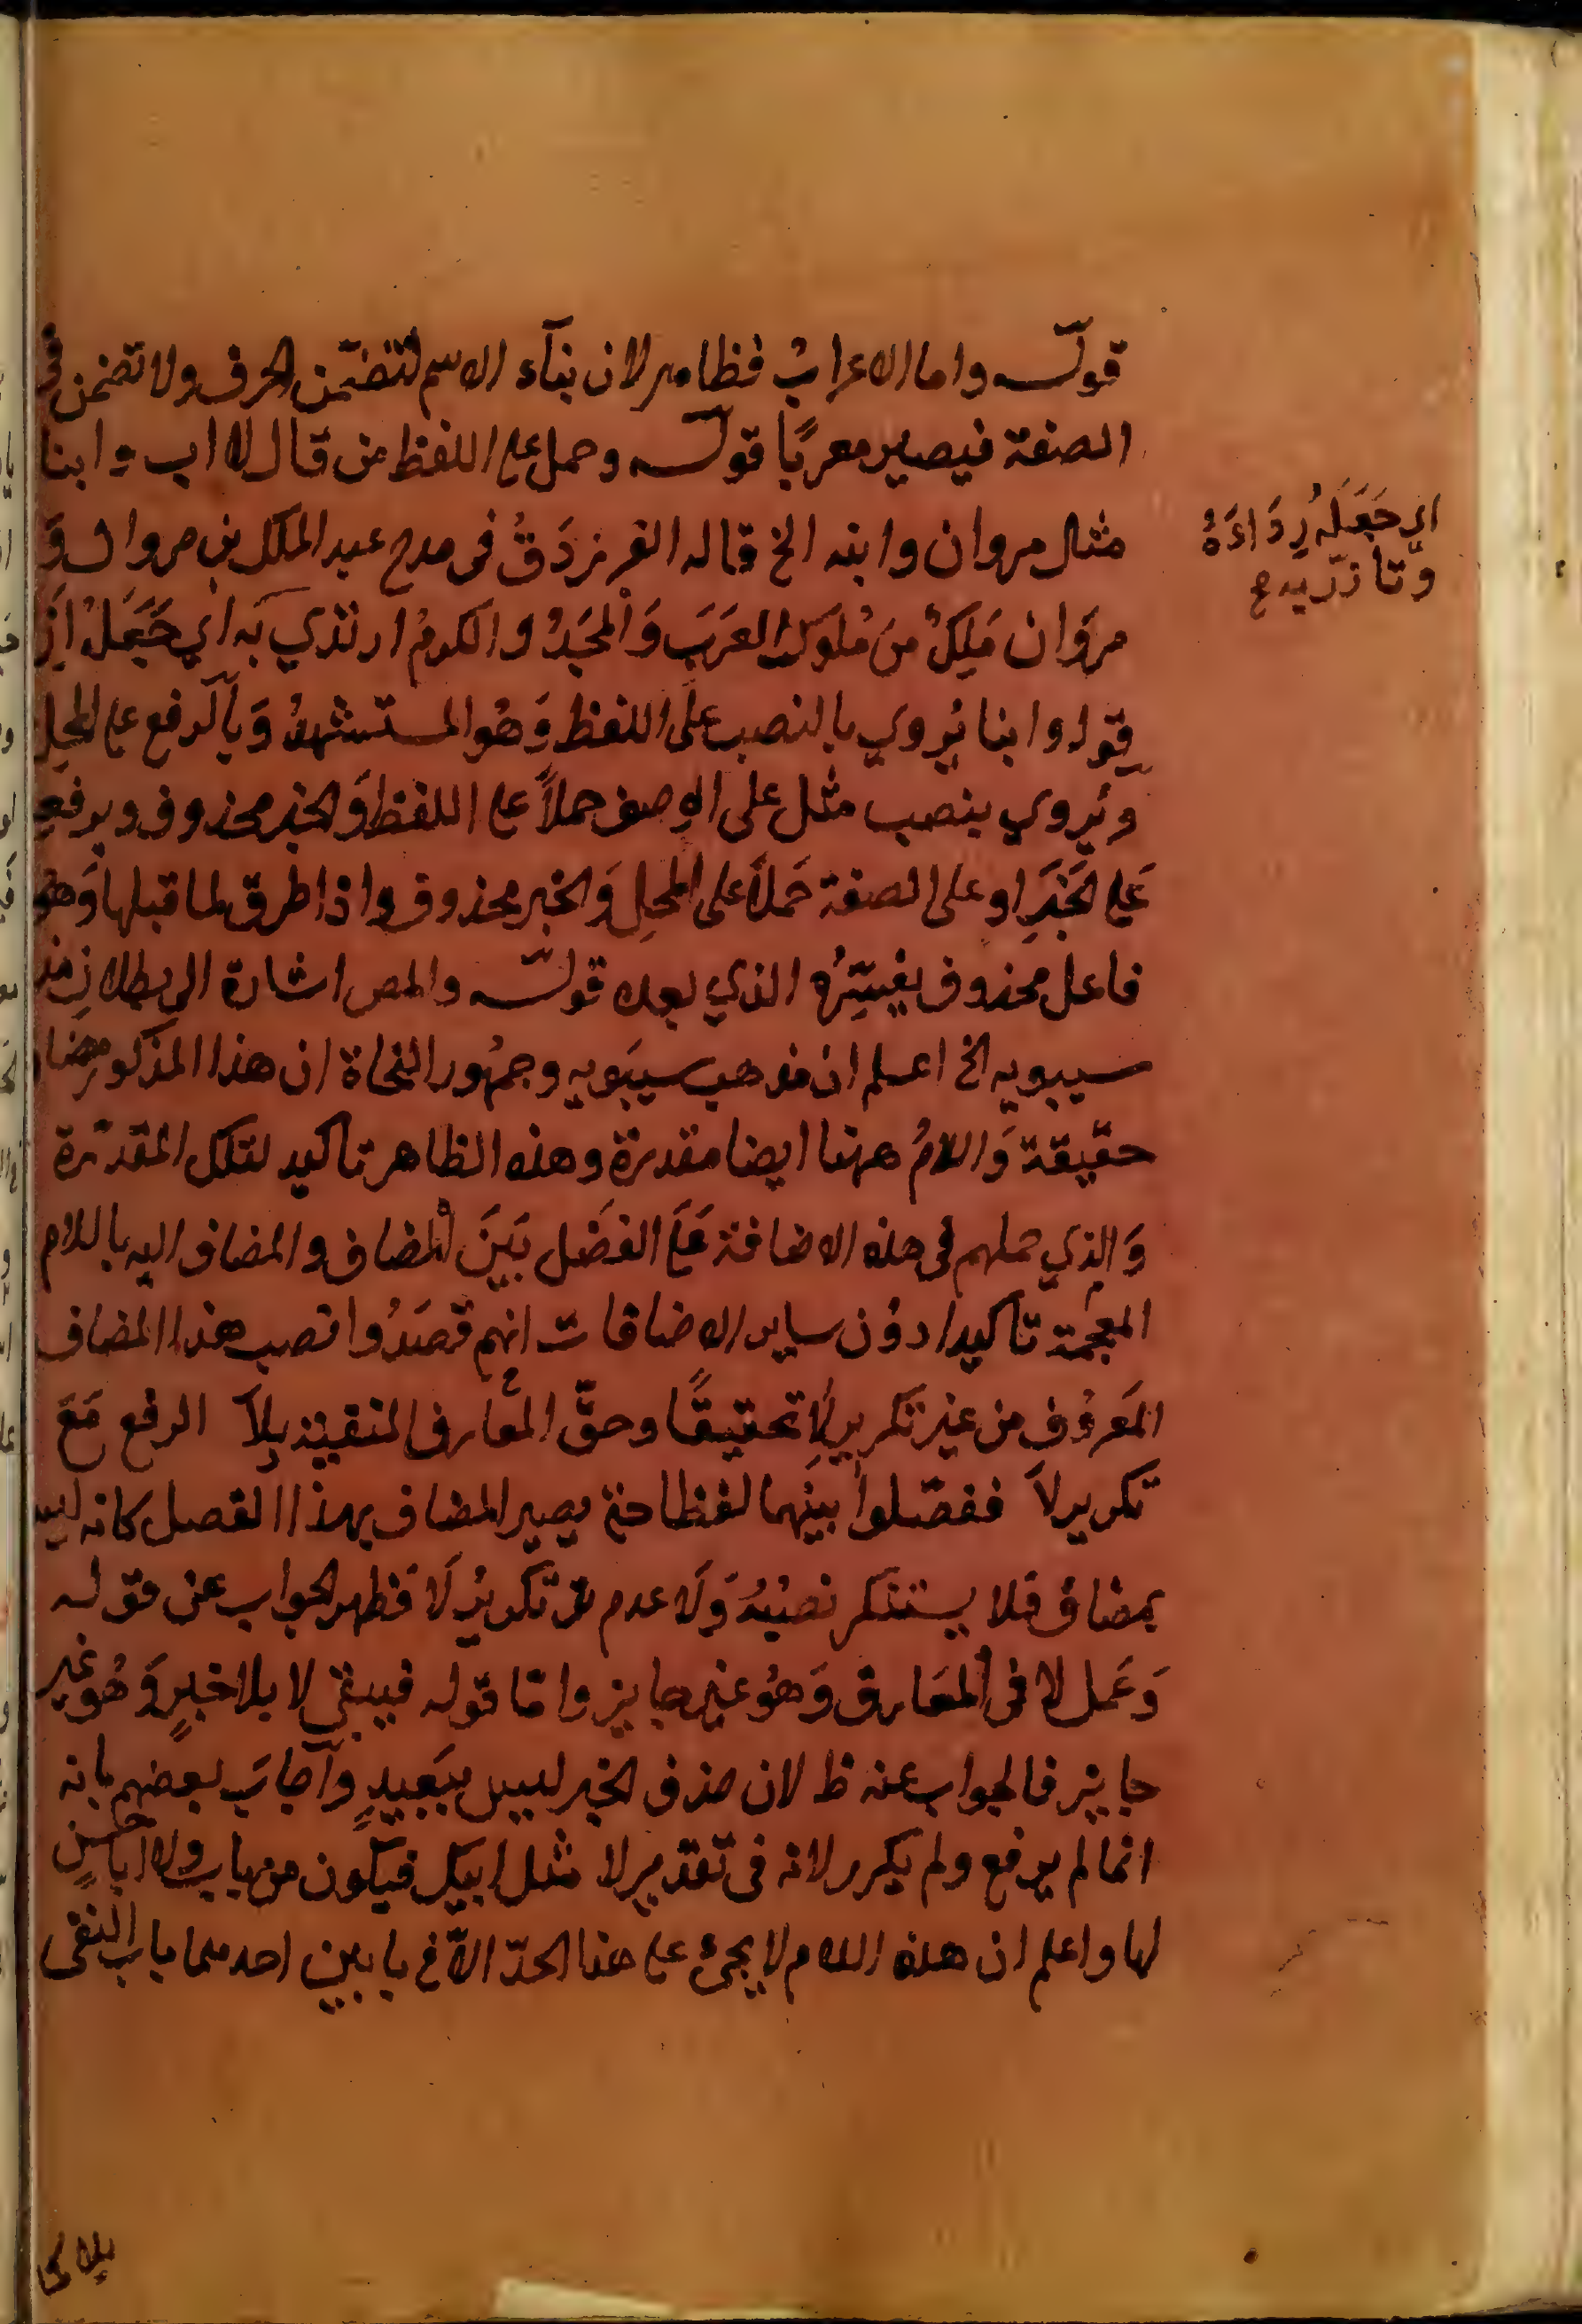 قولـه واما الاعراب فظاهر لان بناء الاسم لتضمّن الحرف ولا تضمن في
الصفة فيصير معربًا قولـه وحمل على اللفظ من قال لا اب وابنا
مثل مروان وابنه الخ قاله الفرزدق فى مدح عبد الملك بن مروان و
مروان مَلِكٌ من مُلوك العَرَبَ وَالمَجَدُ والكرمُ ارتدي به اي جَعَلَهُ
قوله وابنا يُروي بالنصب على اللفظ وَهُو المستشهدُ وَبالرفع على المحل
ويُروي بنصب مثل على الوصف حملاً على اللفظ وَالخبر محذوف وبرفع
عَلى الخَبَرِ او على الصفة حَملاً على المحلِ وَالخبر محذوف واذا ظرق لما قبلها وَهُو
فاعل محذوف يفسِّرُه الذي بعده قولـه والمص اشارة الى بطلان
سيبويه الخ اعلم ان مذهب سيبَويه وجمهور النحاة ان هذا المذكور مضاف
حقيقة وَاللامُ ههنا ايضا مقدرة وهذه الظاهر تاكيد لتلك المقدّرة
وَالذي حملهم فى هذه الاضافة عَلى الفصَل بَيَنَ المضاف والمضاف اليه باللام
المقحمة تاكيدا دوُن ساير الاضافات انهم قصَدُوا نصب هذا المضاف
المَعروُف من غير تكرير لا تحقيقًا وحقّ المعارف المنفية بلاَ الرفع مَعَ
تكرير لاَ ففصّلوا بينَهما لفظا حتى يصير المضاف بهذا الفصل كانه ليس
بمضاف فلا يستنكر نصبُهُ وَلا عدم تكريرُ لَا فظهر الجواب عن قوله
وَعَمل لا فى المعَارف وَهُو غير جايز واما قوله فيبقى لا بلا خبرٍ وَهُو غير
جايز فالجواب عنه ظ لان حذف الخبر ليس ببَعيدٍ واَجابَ بعضهم بانه
انما لم يرفع ولم يكرر لانه فى تقدير لا مثل ابيك فيكون من باب ولا ابا حسنٍ
لها واعلم ان هذه اللام لا يجئ على هذا الحدّ الاّ فى بابين احدهما باب النفى
اي جَعَلَهُ رِدَاءَهُ